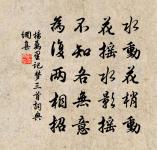 水動花梢動
花搖水影搖
不知各無意
為復兩相招
楊萬里記夢三首詞典
網集